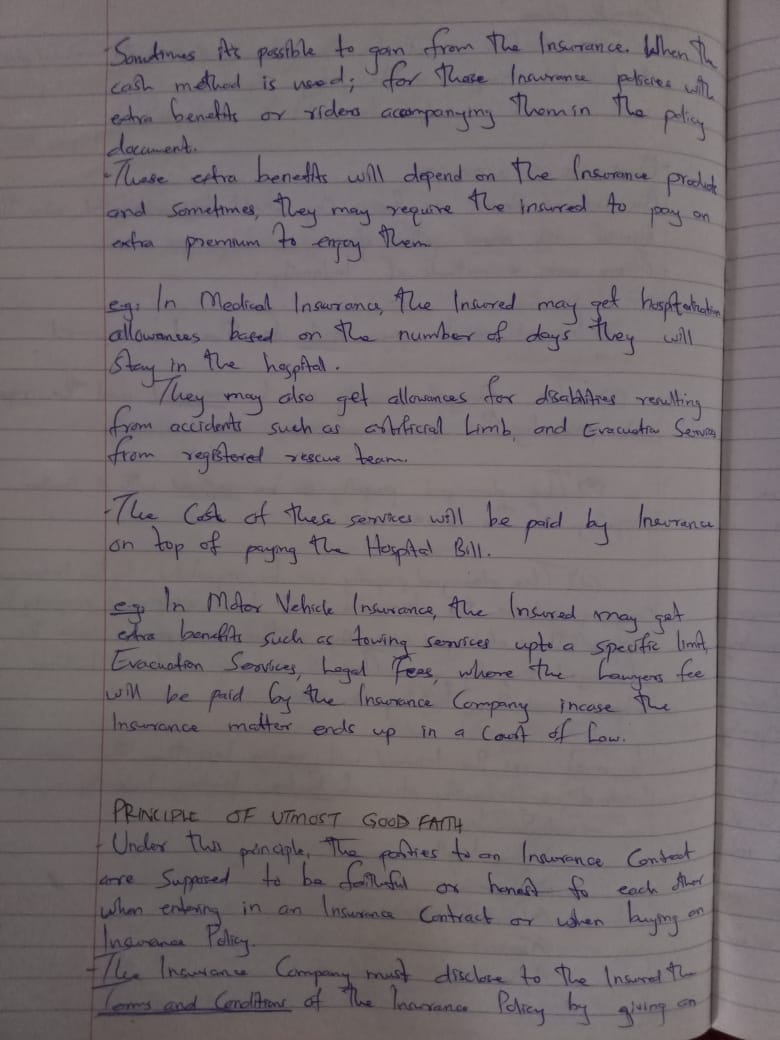 - Sometimes it's possible to gain from the Insurance. When the
cash method is used; for those Insurance policies with
extra benefits or riders accompanying them in the policy
document.
- These extra benefits will depend on the Insurance product
and sometimes, they may require the insured to pay an
extra premium to enjoy them
eg: In Medical Insurance, the Insured may get hospitalization
allowances based on the number of days they will
stay in the hospital.
They may also get allowances for disabilities resulting
from accidents such as artificial Limb, and Evacuation Services
from registered rescue team.
- The Cost of these services will be paid by Insurance
on top of paying the Hospital Bill.
eg. In Motor Vehicle Insurance, the Insured may get
extra benefits such as towing services upto a specific limit,
Evacuation Services, Legal Fees, where the Lawyers fee
will be paid by the Insurance Company incase the
Insurance matter ends up in a Court of Law.
PRINCIPLE OF UTMOST GOOD FAITH
- Under this principle, the parties to an Insurance Contract
are Supposed to be faithful or honest to each other
when entering in an Insurance Contract or when buying an
Insurance Policy.
- The Insurance Company must disclose to the Insured the
Terms and Conditions of the Insurance Policy by giving an